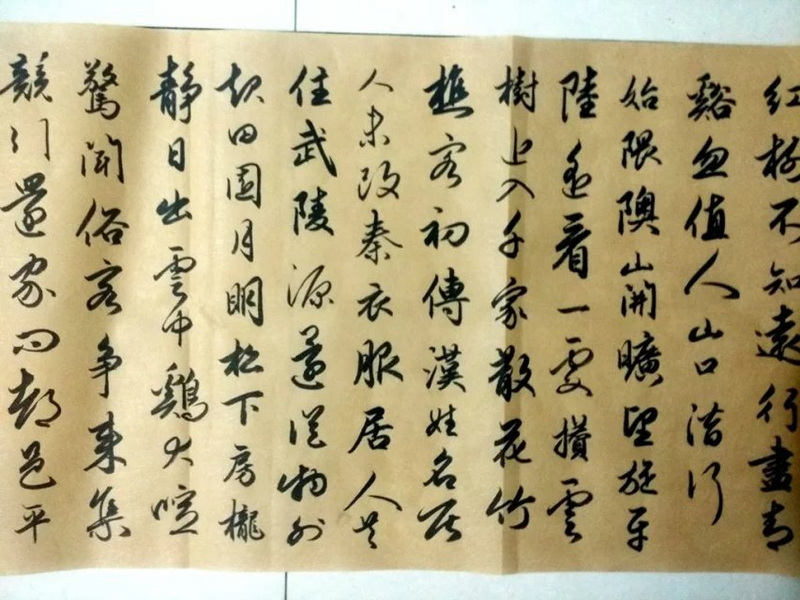 红樹不知遠行盡青
谿忽值人山口潜行
始隈隩山開曠望旋平
陸遥看一處攢雲
樹近入千家散花竹
樵客初傳漢姓名居
人未改秦衣服居人共
住武陵源還從物外
起田園月明松下房櫳
静日出雲中鷄犬喧
驚聞俗客争来集
競引還家问都邑平